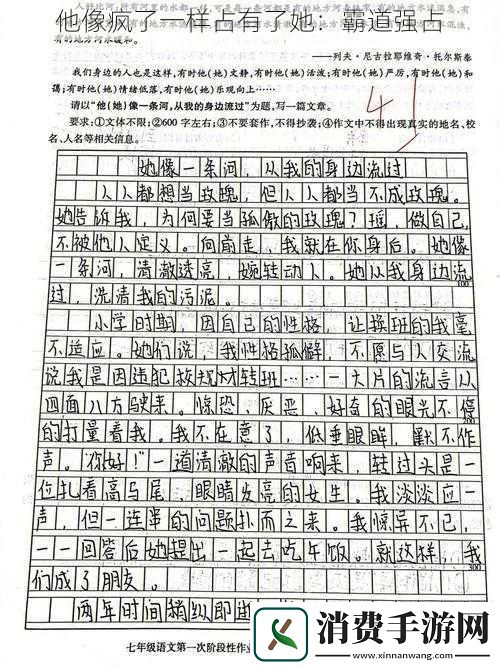 他像疯了一样占有了她：霸道强占
有的地方河水暖和。
——列夫·尼古拉耶维奇·托尔斯泰
我们身边的人也是这样,有时他(她)文静,有时他(她)活泼;有时他(她)严厉,有时他(她)和
蔼;有时他(她)情绪低落,有时他(她)乐观向上……
请以“他(她)像一条河,从我的身边流过”为题,写一篇文章。
要求:①文体不限;②600字左右;③不要套作,不得抄袭;④作文中不得出现真实的地名、校
名、人名等相关信息。
41
她像一条河，从我的身边流过
人人都想当玫瑰，但人人都当不成玫瑰。
她告诉我，为何要当孤傲的玫瑰？瑶，做自己，
不被他人定义。向前走，我就在你身后。她像
一条河，清澈透亮，婉转动人。她从我身边流
100
过，洗清我的污泥。
小学时期，因自己的性格，让换班的我毫
不适应。她们说，我性格孤僻，不愿与人交流
说我是因违犯校规才转班……一大片的流言从
四面八方驶来。惊恐、厌恶、好奇的眼光不停
200
的打量着我。我不在意了，低垂眼眸，默不作
声。“你好！”一道清澈的声音响来，转过头是一
位扎着高马尾，眼睛发亮的女生。我淡淡应一
声，但一连串的问题扑而之来。我惊异不已，
一一回答后她提出一起去吃午饭。就这样，我
300
们成了朋友。
两年时间稍纵即逝
七年级语文第一次阶段性作业
消费手游网
www.xinnanwang.com